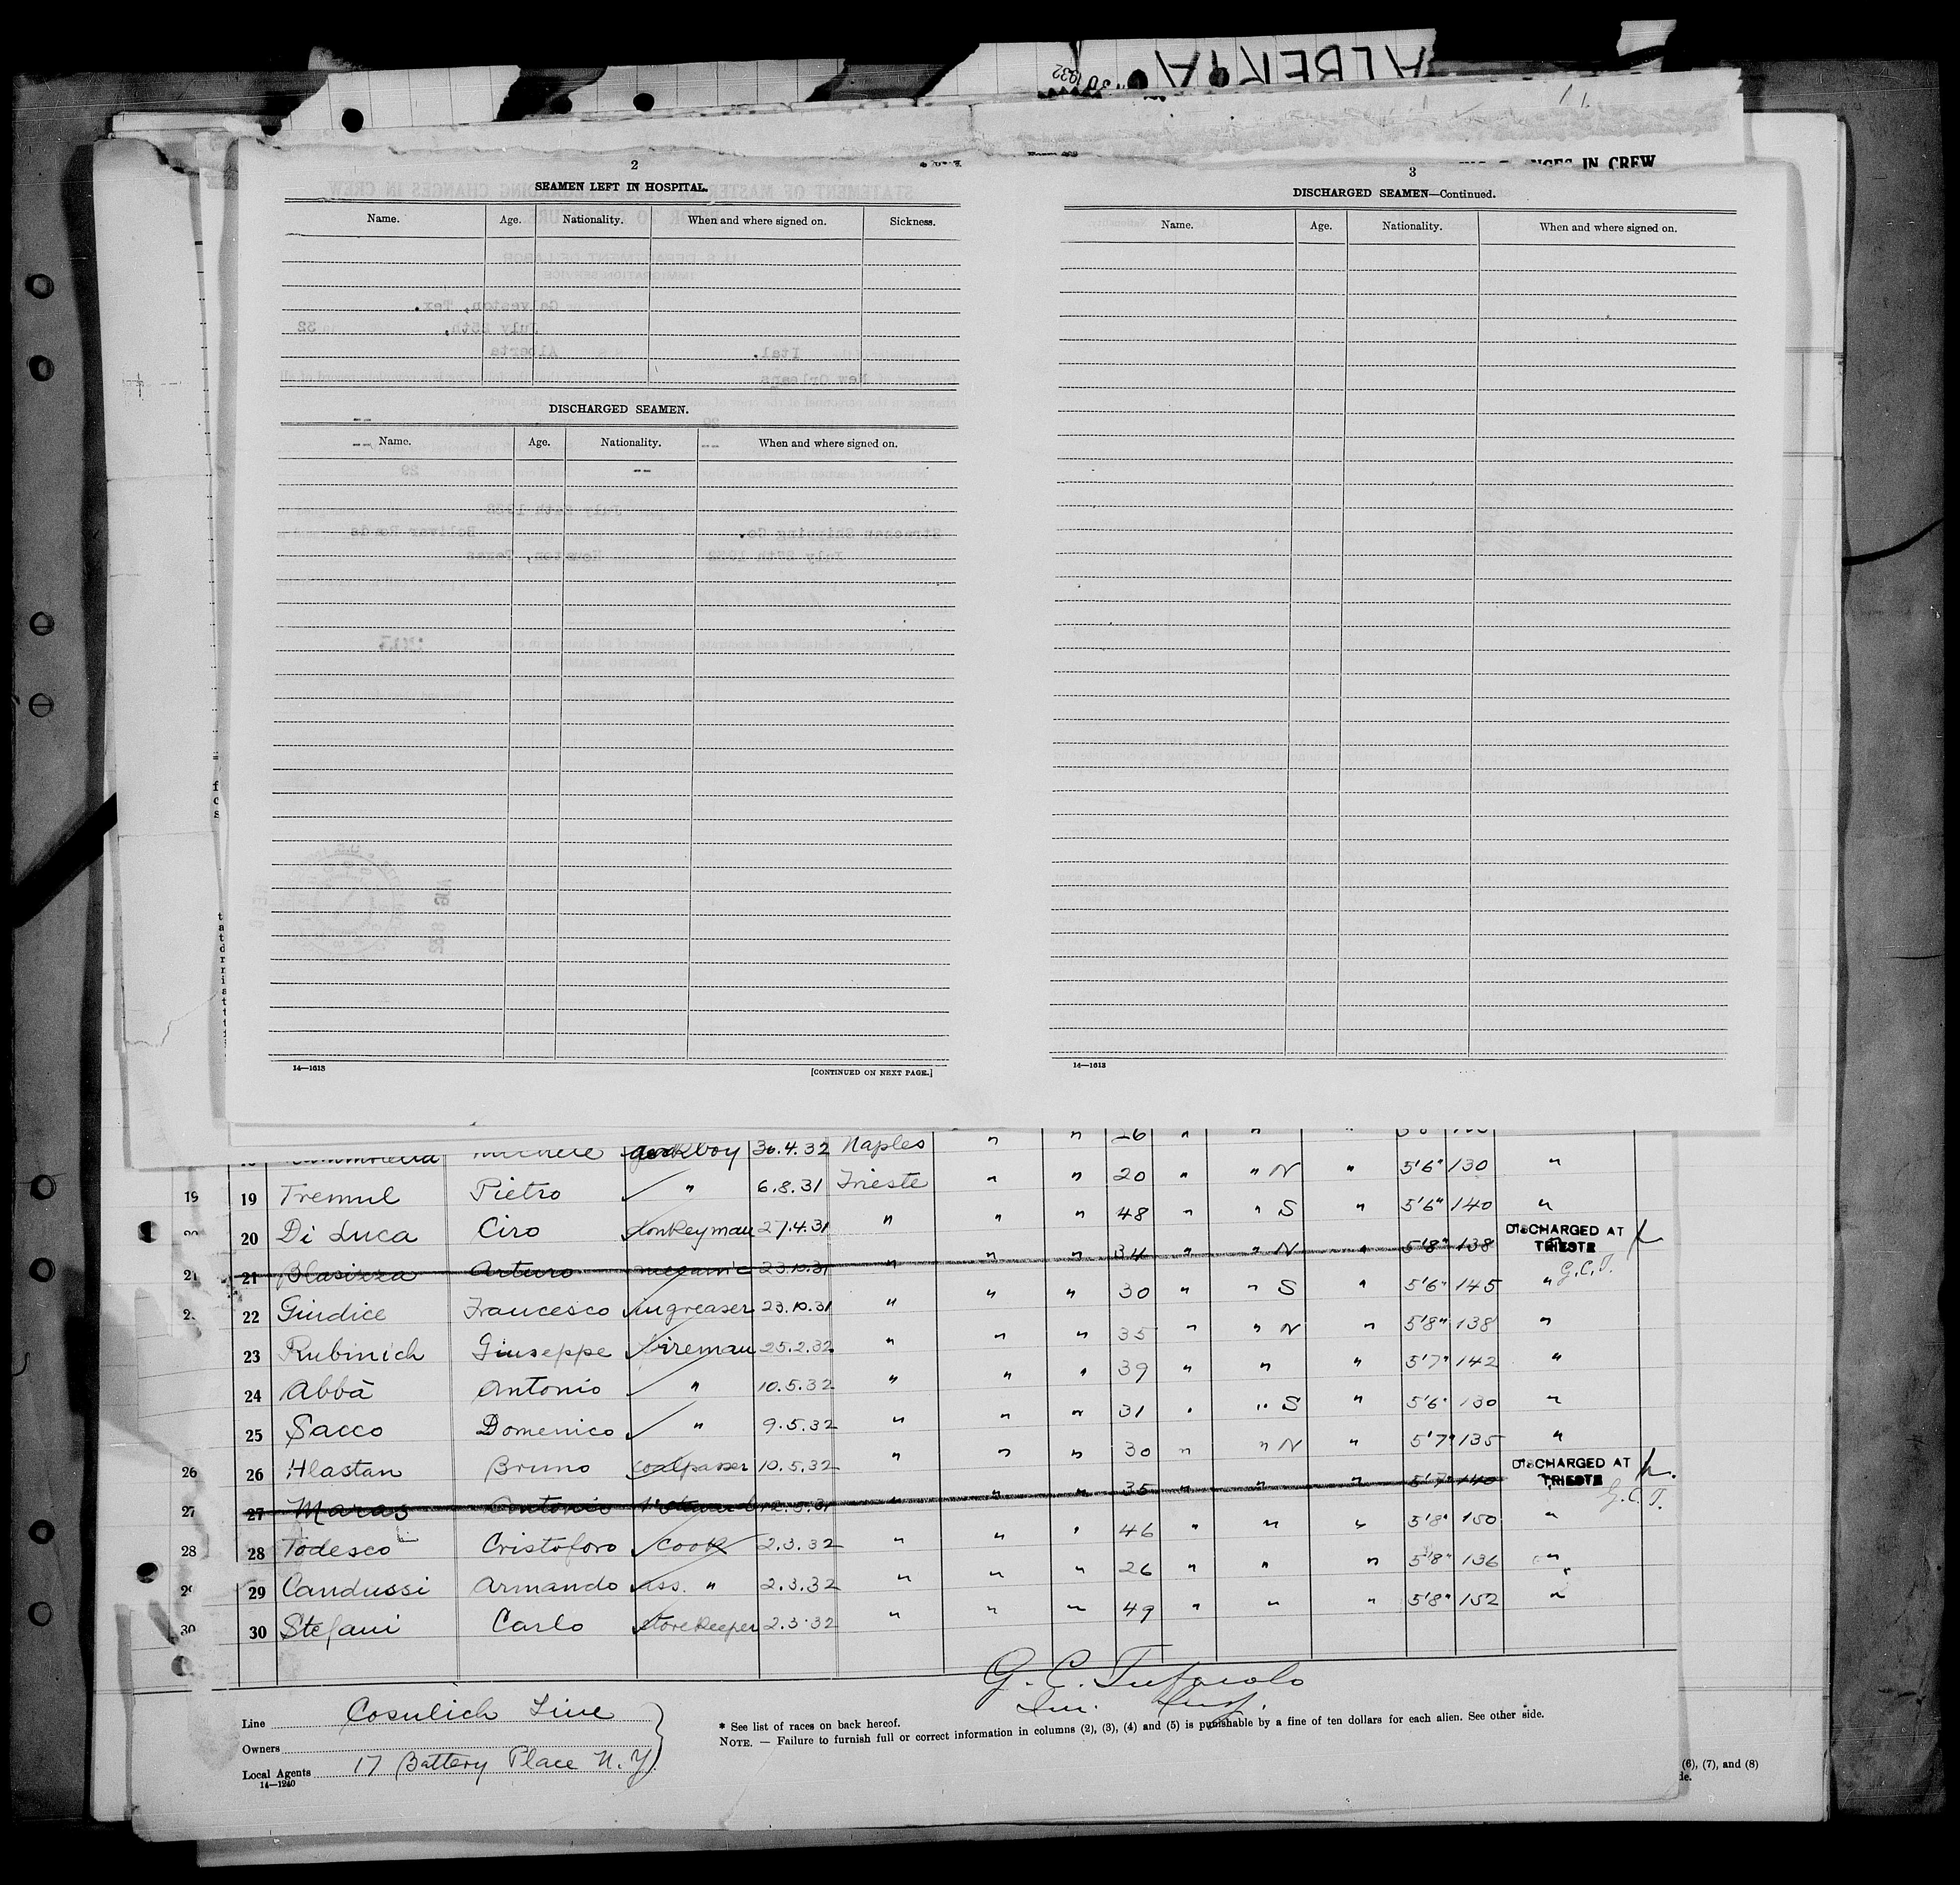 ALBERTA
1932
CHANGES IN CREW
2
SEAMEN LEFT IN HOSPITAL.
Name. Age. Nationality. When and where signed on. Sickness.
DISCHARGED SEAMEN.
Name. Age. Nationality. When and where signed on.
14—1613
[CONTINUED ON NEXT PAGE.]
3
DISCHARGED SEAMEN—Continued.
Name. Age. Nationality. When and where signed on.
14—1613
Michele deckboy 30.4.32 Naples " " 26 " " "
19 19 Tremul Pietro " 6.8.31 Trieste " " 20 " " N " 5'6" 130 "
20 Di Luca Ciro donkeyman 27.4.31 " " " 48 " " S " 5'6" 140 "
21 21 Blasizza Arturo mecanic 23.10.31 " " " 34 " " N " 5'8" 138 " DISCHARGED AT TRIESTE
G.C.T.
22 Giudice Francesco ingreaser 23.10.31 " " " 30 " " S " 5'6" 145 "
23 Rubinich Giuseppe fireman 25.2.32 " " " 35 " " N " 5'8" 138 "
24 Abbà Antonio " 10.5.32 " " " 39 " " " 5'7" 142 "
25 Sacco Domenico " 9.5.32 " " " 31 " " S " 5'6" 130 "
26 26 Hlastan Bruno coalpasser 10.5.32 " " " 30 " " N " 5'7" 135 "
27 27 Maras Antonio 12.5.31 " " " 35 " " " 5'7" 140 DISCHARGED AT TRIESTE
G.C.T.
28 28 Todesco Cristoforo cook 2.3.32 " " " 46 " " " 5'8" 150 "
29 29 Candussi Armando ass. " 2.3.32 " " " 26 " " " 5'8" 136 "
30 30 Stefani Carlo storekeeper 2.3.32 " " " 49 " " " 5'8" 152 "
G. C.
Line Cosulich Line
Owners
Local Agents 17 Battery Place N.Y.
14—1240
* See list of races on back hereof.
NOTE. — Failure to furnish full or correct information in columns (2), (3), (4) and (5) is punishable by a fine of ten dollars for each alien. See other side.
(6), (7), and (8)